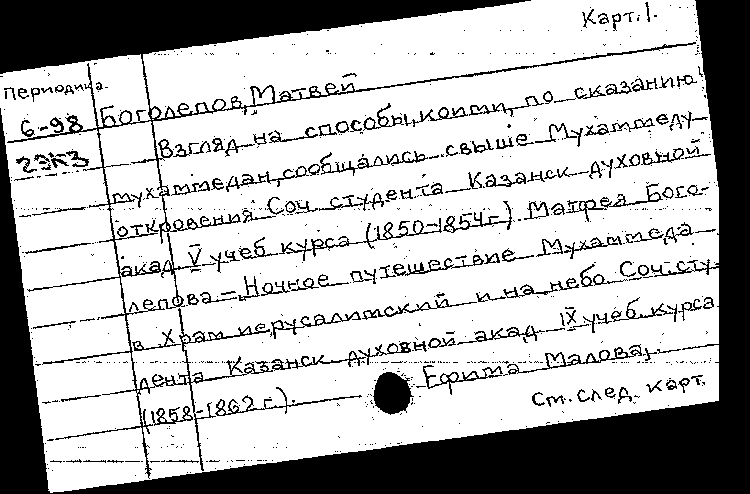 Карт. 1.
Периодика.
Боголепов, Матвей
6-98
2экз
Взгляд на способы, коими, по сказанию
мухаммедан, сообщались свыше Мухаммеду
откровения. Соч. студента Казанск духовной
акад. V учеб курса (1850-1854г.) Матфея Бого-
лепова —, Ночное путешествие Мухаммеда
в Храм иерусалимский и на небо. Соч. сту-
дента Казанск духовной акад IX учеб. курса
(1858-1862 г.). — Ефима Малова,.
См. след. карт.